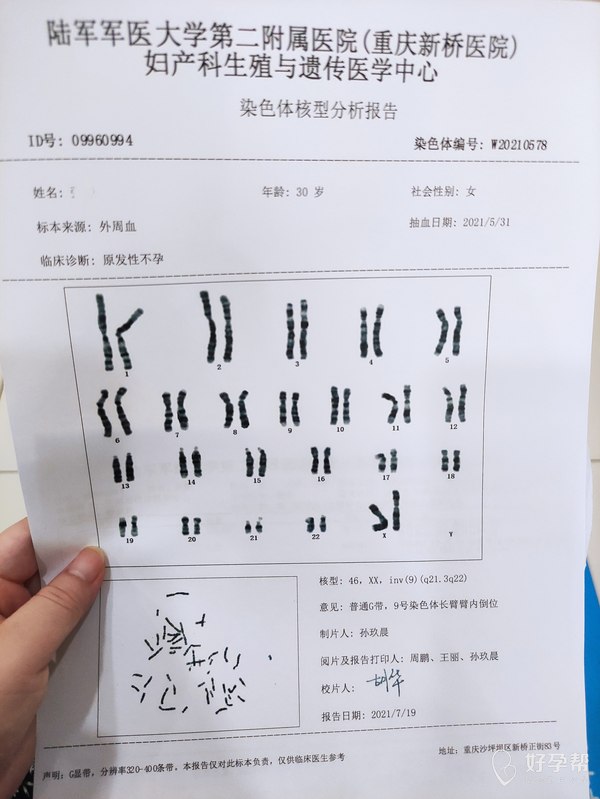 陆军军医大学第二附属医院(重庆新桥医院)
妇产科生殖与遗传医学中心
染色体核型分析报告
ID号: 09960994 染色体编号: W20210578
姓名: 年龄: 30 岁 社会性别: 女
标本来源: 外周血 抽血日期: 2021/5/31
临床诊断: 原发性不孕
1 2 3 4 5
6 7 8 9 10 11 12
13 14 15 16 17 18
19 20 21 22 X Y
核型: 46, XX, inv(9)(q21.3q22)
意见: 普通G带, 9号染色体长臂臂内倒位
制片人: 孙玖晨
阅片及报告打印人: 周鹏、王丽、孙玖晨
校片人: 胡华
报告日期: 2021/7/19
声明: G显带, 分辨率320-400条带。本报告仅对此标本负责, 仅供临床医生参考
地址: 重庆沙坪坝区新桥正街83号
好孕帮